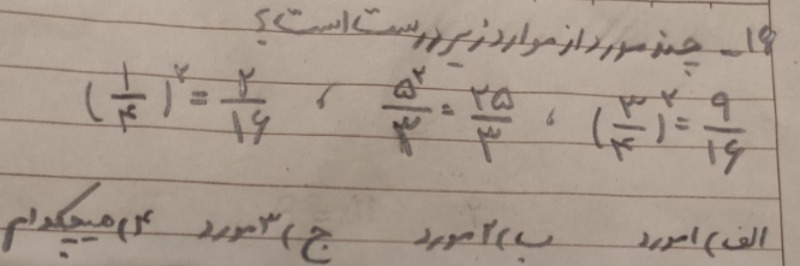 ۱۶_ چند مورد از موارد زیر درست است؟
(۳/۴)^۲ = ۹/۱۶ ، ۵^۲/۳ = ۲۵/۳ ، (۱/۴)^۲ = ۲/۱۶
الف) ۱مورد ب) ۲مورد ج) ۳مورد ۴) هیچکدام